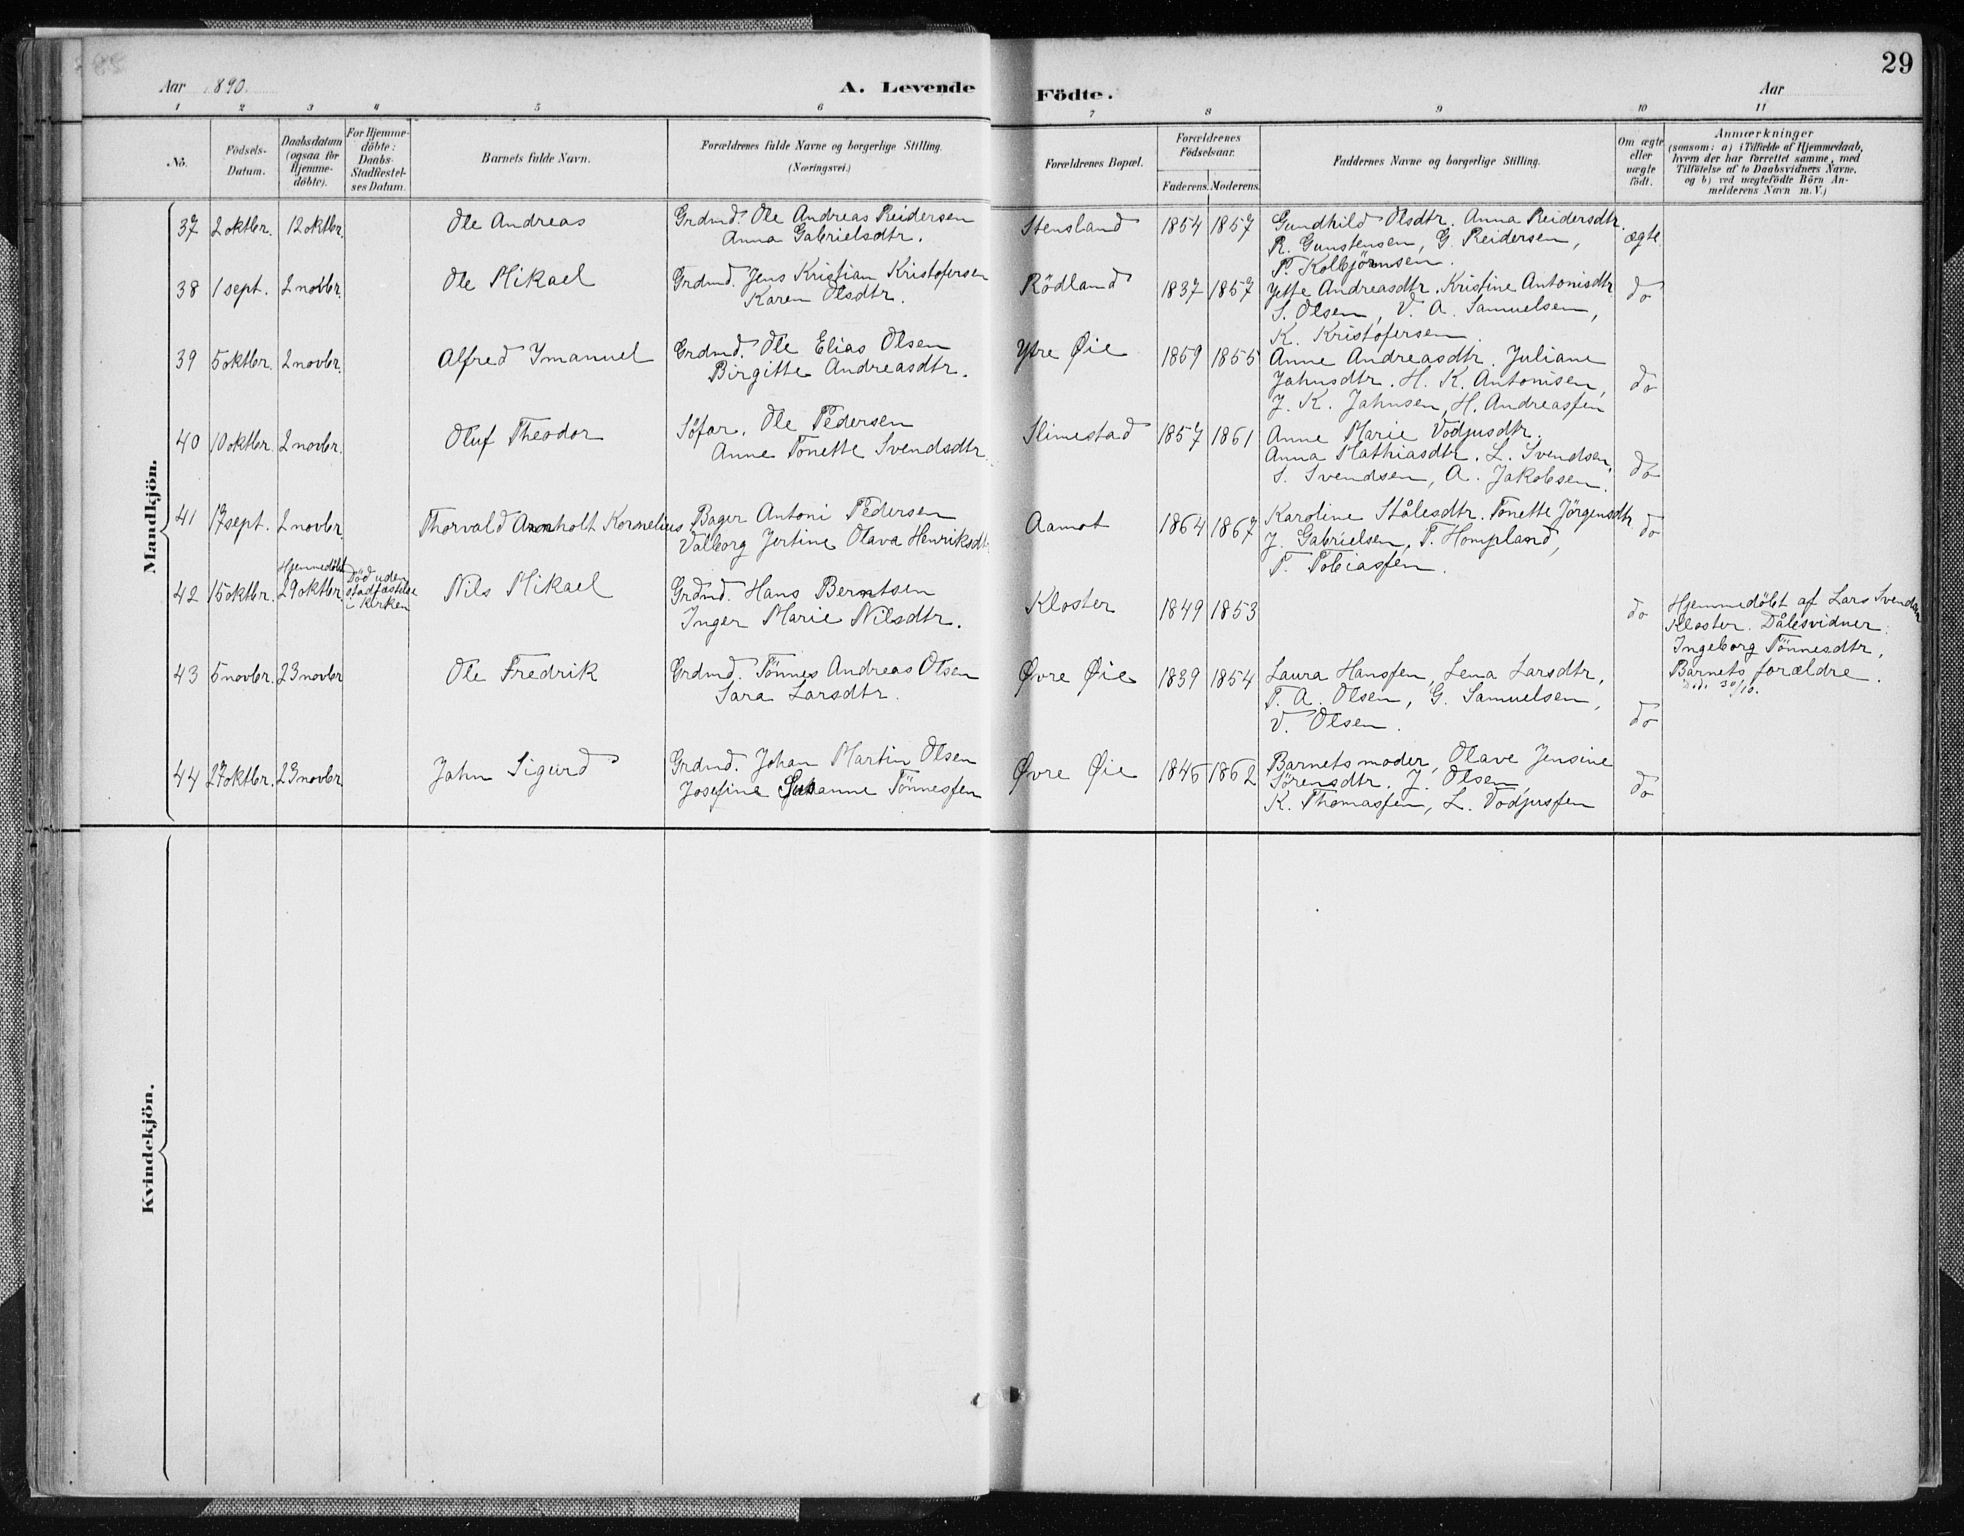 29
Aar 1890.
A. Levende Födte.
Aar
1 2 3 4 5 6 7 8 9 10 11
No.
Födsels-Datum.
Daabsdatum (ogsaa för Hjemme-döbte).
For Hjemme-döbte: Daabs-Stadfæstel-ses Datum.
Barnets fulde Navn.
Forældrenes fulde Navne og borgerlige Stilling. (Næringsvei.)
Forældrenes Bopæl.
Forældrenes Födselsaar.
Faderens. Moderens.
Faddernes Navne og borgerlige Stilling.
Om ægte eller uægte födt.
Anmærkninger
(saasom: a) i Tilfælde af Hjemmedaab,
hvem der har forrettet samme, med
Tilföielse af to Daabsvidners Navne.
og b) ved uægtefödte Börn An-
melderens Navn m. V.)
Mandkjön.
37 2 oktbr. 12 oktbr. Ole Andreas Grdmd. Ole Andreas Reidersen Stensland 1854 1857 Gundhild Olsdtr. Anna Reidersdtr.
Anna Gabrielsdtr. R. Gunstensen, G. Reidersen, ægte
T. Kolbjörnsen.
38 1 sept. 2 novbr. Ole Mikael Grdmd. Jens Kristian Kristofersen Rödland 1837 1857 Jette Andreasdtr. Kristine Antonisdtr do
Karen Olsdtr. S. Olsen, V. A. Samuelsen,
K. Kristofersen.
39 5 oktbr. 2 novbr. Alfred Imanuel Grdmd. Ole Elias Olsen Ytre Øie 1859 1855 Anne Andreasdtr. Juliane
Birgitte Andreasdtr. Jahnsdtr. H. K. Antonisen, do
J. K. Jahnsen, H. Andreassen
40 10 oktbr. 2 novbr. Oluf Theodor Söfar. Ole Pedersen Slimestad 1857 1861 Anne Marie Vodjusdtr.
Anne Tonette Svendsdtr. Anna Mathiasdtr. L. Svendsen, do
S. Svendsen, A. Jakobsen.
41 17 sept. 2 novbr Thorvald Arnholt Kornelius Bager Antoni Pedersen Aamot 1864 1867 Karoline Stålesdtr. Tonette Jörgensdtr do
Valborg Jertine Olava Henriksdtr J. Gabrielsen, T. Hompland,
T. Tobiassen.
42 15 oktbr. Hjemmedöbt 29 oktbr. Död uden stadfæstelse i kirken Nils Mikael Grdmd. Hans Berntsen Kloster 1849 1853 do Hjemmedöbt af Lars Svendsen
Inger Marie Nilsdtr. Kloster. Dåbsvidner:
Ingeborg Tönnesdtr,
Barnets forældre.
Död 30/10.
43 5 novbr. 23 novbr Ole Fredrik Grdmd. Tönnes Andreas Olsen Øvre Øie 1839 1854 Laura Hanssen, Lena Larsdtr,
Sara Larsdtr. T. A. Olsen, G. Samuelsen,
V. Olsen. do
44 27 oktbr. 23 novbr Jahn Sigurd Grdmd. Johan Martin Olsen Øvre Øie 1846 1862 Barnets moder, Olave Jensine
Josefine Susanne Tönnessen Sörensdtr. J. Olsen, do
K. Thomassen, L. Vodjussen
Kvindekjön.